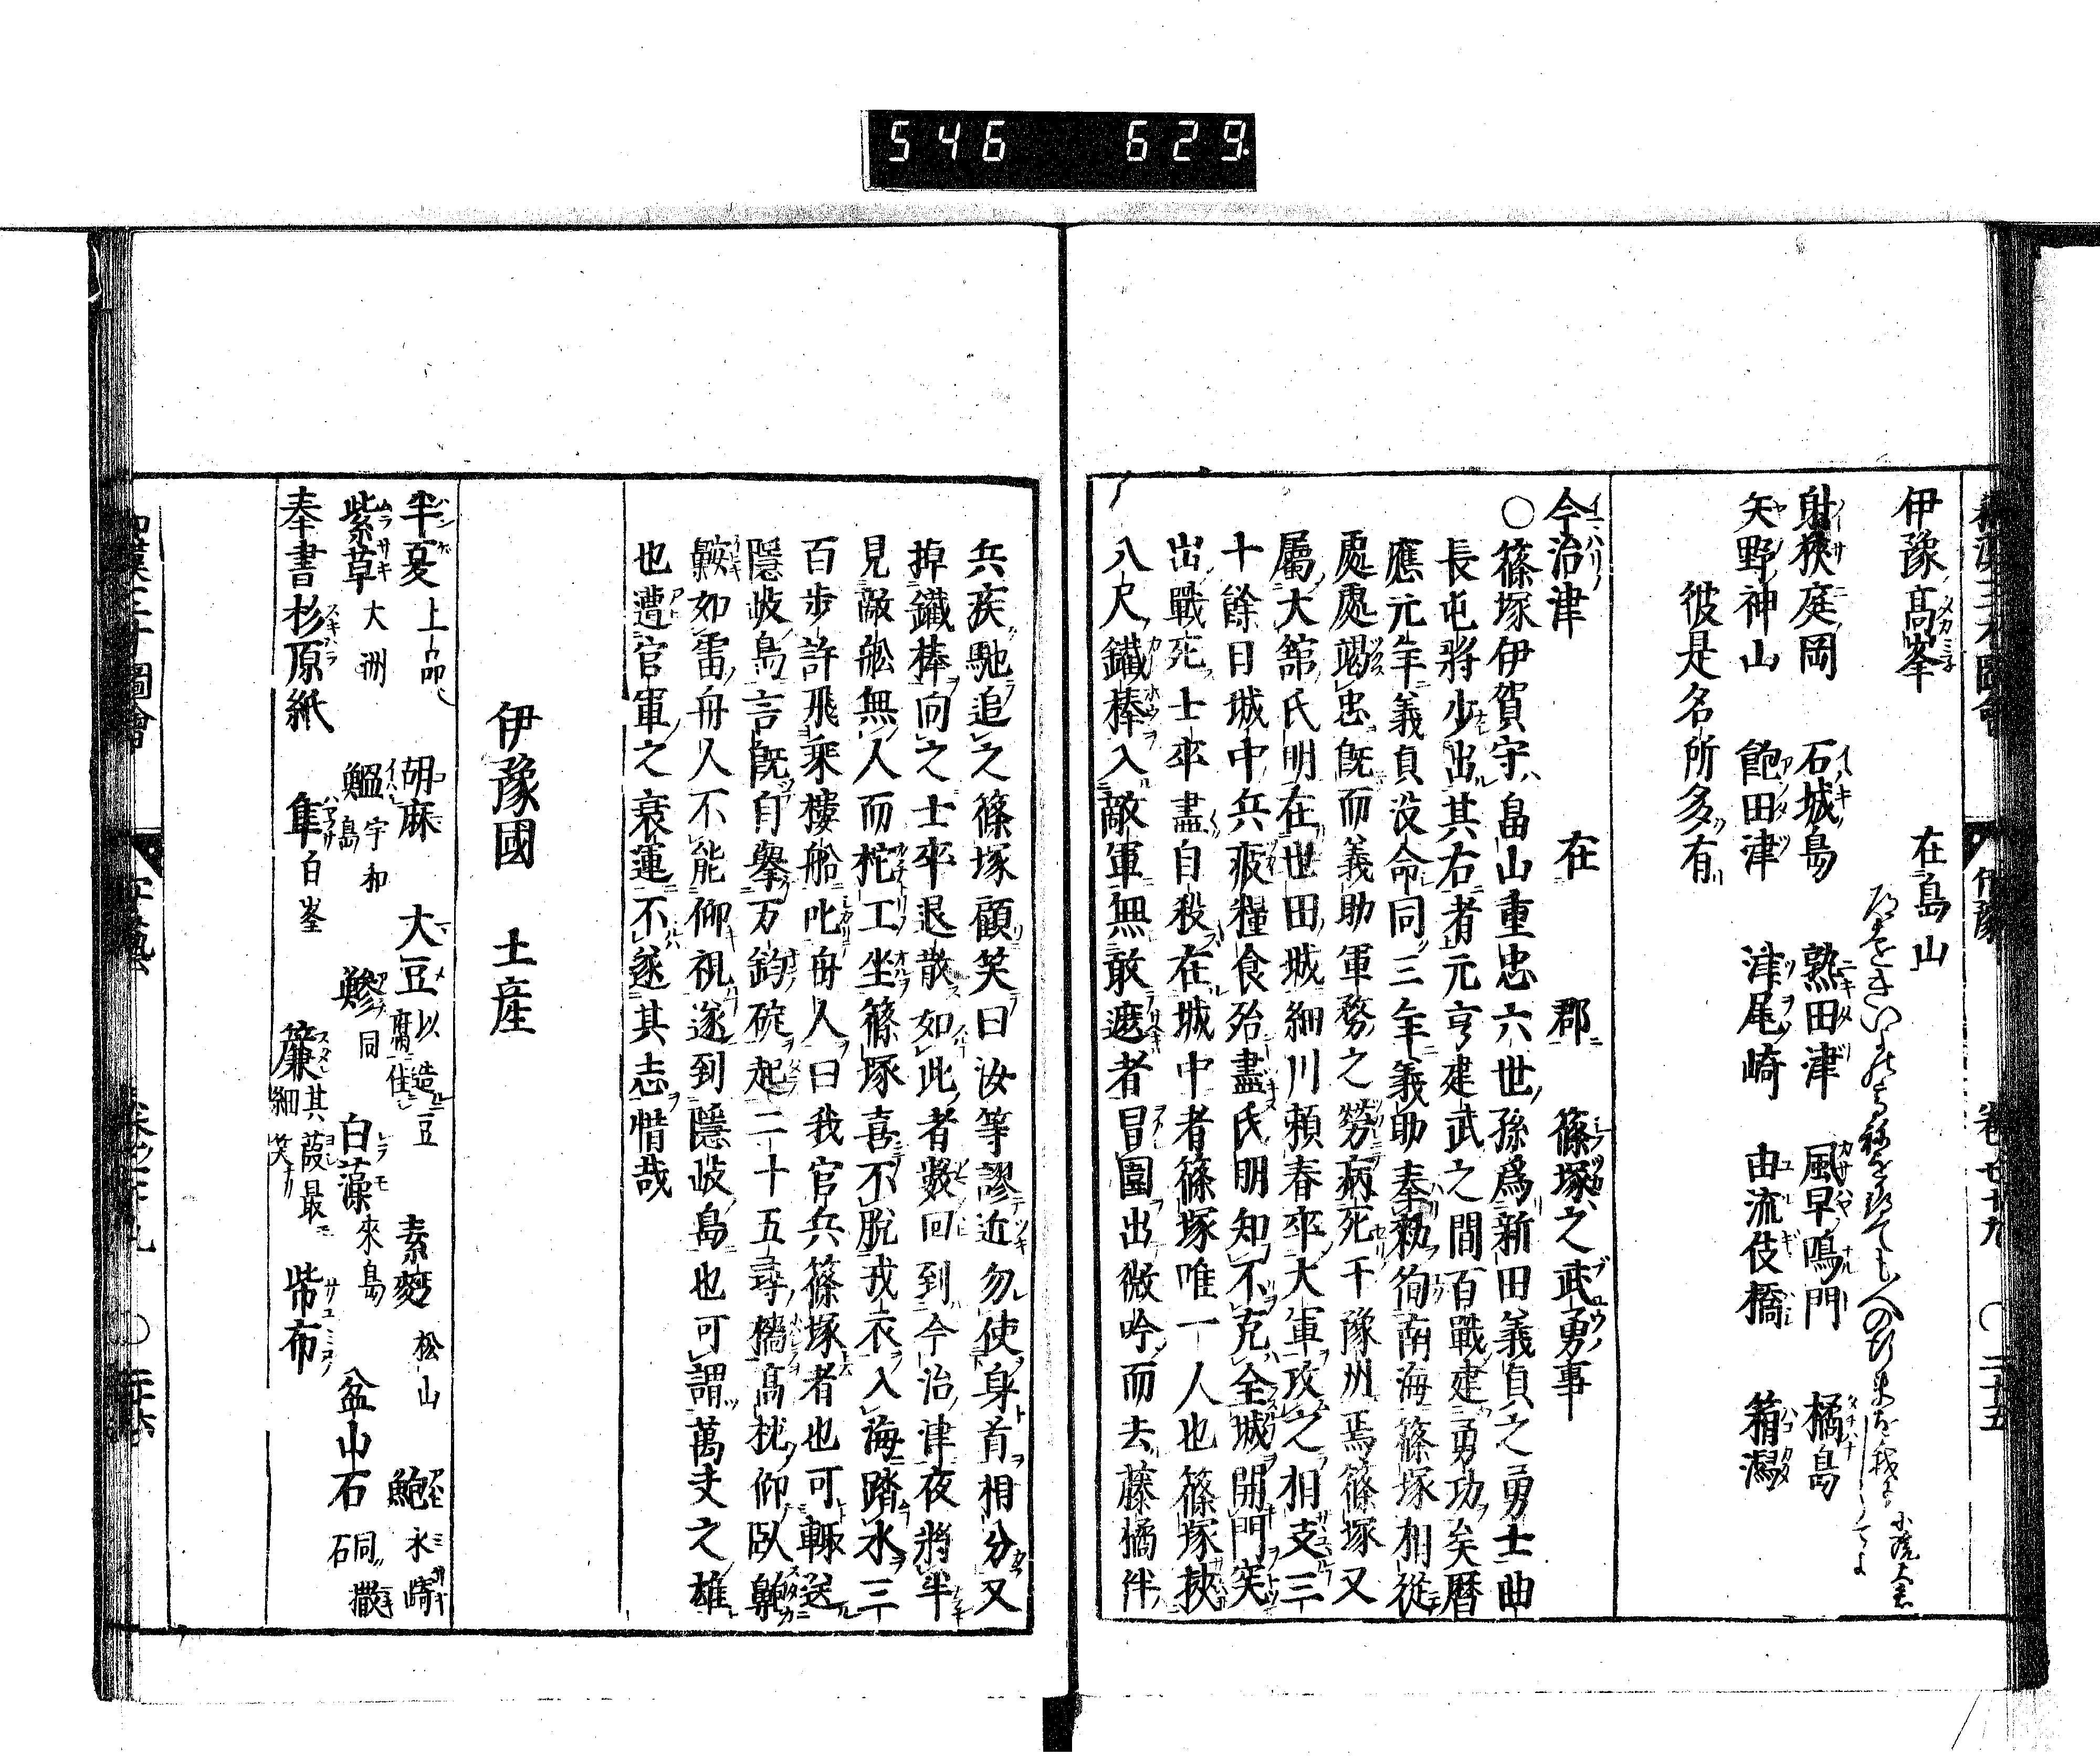 546 629
伊豫 卷七十九 〇二十五
伊豫高峯 在島山
射狹庭岡 石城島 熟田津 風早鳴門 橘島
矢野神山 飽田津 津尾崎 由流伎橋 箱潟
彼是名所多有
今治津 在 郡 篠塚之武勇事
〇篠塚伊賀守畠山重忠六世孫爲新田義貞之勇士曲
長屯將少出其右者元亨建武之間百戰建勇功矣曆
應元年義貞没命同三年義助奉勑徇南海篠塚相從
處處竭忠既而義助軍務之勞病死于豫州焉篠塚又
屬大舘氏明在世田城細川賴春卒大軍攻之相支三
十餘日城中兵疲糧食殆盡氏明知不克全城開門突
出戰死士卒盡自殺在城中者篠塚唯一人也篠塚挾
八尺鐵棒入敵軍無敢遮者冒圍出微吟而去藤橘伴
兵疾馳追之篠塚顧笑曰汝等謬近勿使身首相分又
掉鐵棒向之士卒退散如此者數回到今治津夜將半
見敵舩無人而柁工坐篠塚喜不脱戎衣入海踏水三
百步許飛乘樓船叱舟人曰我官兵篠塚者也可輙送
隱岐島言既自擧万鈞碇起二十五尋檣高枕仰臥齁
鼾如雷舟人不能仰視遂到隱岐島也可謂萬夫之雄
也遭官軍之衰運不遂其志惜哉
伊豫國 土産
半夏 上品 胡麻 大豆 以造豆腐佳 素麪 松山 鮑 水崎
紫草 大洲 鰮 宇和島 鰺 同 白藻 來島 盆山石 同 撒石
奉書杉原紙 隼 白峯 簾 其葭最細美 柴布